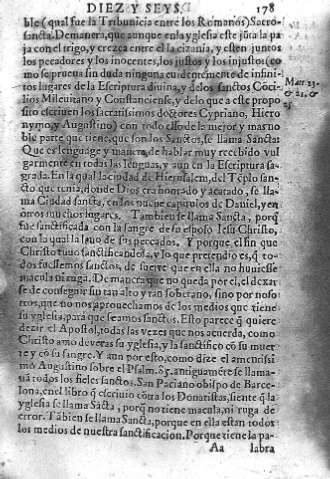 DIEZ Y SEYS. 178
ble (qual fue la Tribunicia entre los Romanos) Sacro-
sancta. Demanera, que aunque en la yglesia este jūta la pa
ja con el trigo, y crezca entre el la cizania, y esten juntos
los pecadores y los inocentes, los justos y los injustos (co
mo se prueua sin duda ninguna euidentemente de infini-
tos lugares de la Escriptura diuina, y de los sanctos Cōci-
lios Mileuitano y Constanciense, y de lo que a este propo
sito escriuen los sacratissimos doctores Cypriano, Hiero
nymo, y Augustino) con todo esso de la mejor y mas no
ble parte que tiene, que son los Sanctos, se llama Sancta:
Que es lenguage y manera de hablar muy recebido vul
garmente en todas las lenguas, y aun en la Escriptura sa-
grada. En la qual la ciudad de Hierusalem, del Tēplo san-
cto que tenia, donde Dios era honrado y acatado, se lla-
ma Ciudad sancta, en los nueue capitulos de Daniel, y en
otros muchos lugares. Tambien se llama Sancta, porq̄
fue sanctificada con la sangre de su esposo Jesu Christo,
con la qual la lauo de sus peccados. Y porque el fin que
Christo tuuo sanctificandola, y lo que pretendio es, q̄ to-
dos fuessemos sanctos, de suerte que en ella no huuiesse
macula ni ruga. De manera que no queda por el, el dexar
se de conseguir su tan alto y tan soberano, sino por noso
tros, que no nos aprouechamos de los medios que tiene
su yglesia, para que seamos sanctos. Esto parece q̄ quiere
dezir el Apostol, todas las vezes que nos acuerda, como
Christo amo deueras su yglesia, y la sanctifico cō su muer
te y cō su sangre. Y aun por esto, como dize el
Augustino sobre el Psalm. antiguamēte se llama-
uā todos los fieles sanctos. San Paciano obispo de Barce-
lona, en el libro q̄ escriuio cōtra los Donatistas, siente q̄ la
yglesia se llama Sācta, porq̄ no tiene macula, ni ruga de
error. Tābien se llama Sancta, porque en ella estan todos
los medios de nuestra sanctificacion. Porque tiene la pa-
Aa labra
Matt. 13.